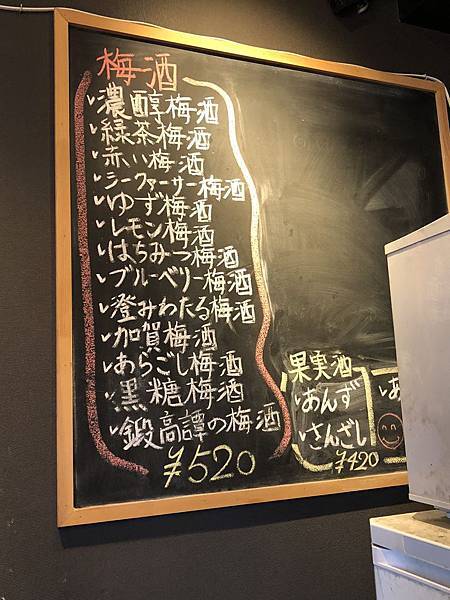 梅酒
濃醇梅酒
緑茶梅酒
赤い梅酒
シークァーサー梅酒
ゆず梅酒
レモン梅酒
はちみつ梅酒
ブルーベリー梅酒
澄みわたる梅酒
加賀梅酒
あらごし梅酒
黒糖梅酒
鍛高譚の梅酒
¥520
果実酒
あんず
さんざし
¥420
あ